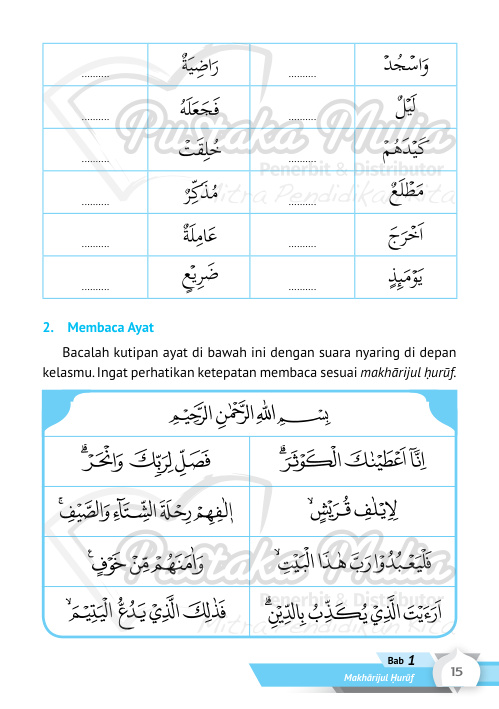 وَاسْجُدْ .......... رَاضِيَةٌ ..........
لَيْلٌ .......... فَجَعَلَهُ ..........
كَيْدَهُمْ .......... خُلِقَتْ ..........
مَطْلَعٌ .......... مُذَكِّرٌ ..........
اَخْرَجَ .......... عَامِلَةٌ ..........
يَوْمَئِذٍ .......... ضَرِيْعٍ ..........
Pustaka Mulia
Penerbit & Distributor
Mitra Pendidikan Kita
2. Membaca Ayat
Bacalah kutipan ayat di bawah ini dengan suara nyaring di depan
kelasmu. Ingat perhatikan ketepatan membaca sesuai makhārijul ḥurūf.
بِسْمِ اللّٰهِ الرَّحْمٰنِ الرَّحِيْمِ
اِنَّآ اَعْطَيْنٰكَ الْكَوْثَرَۗ فَصَلِّ لِرَبِّكَ وَانْحَرْۗ
لِاِيْلٰفِ قُرَيْشٍۙ اٖلٰفِهِمْ رِحْلَةَ الشِّتَاۤءِ وَالصَّيْفِۚ
فَلْيَعْبُدُوْا رَبَّ هٰذَا الْبَيْتِۙ وَاٰمَنَهُمْ مِّنْ خَوْفٍۚ
اَرَءَيْتَ الَّذِيْ يُكَذِّبُ بِالدِّيْنِۗ فَذٰلِكَ الَّذِيْ يَدُعُّ الْيَتِيْمَۙ
Pustaka Mulia
Penerbit & Distributor
Mitra Pendidikan Kita
Bab 1
Makhārijul Ḥurūf
15